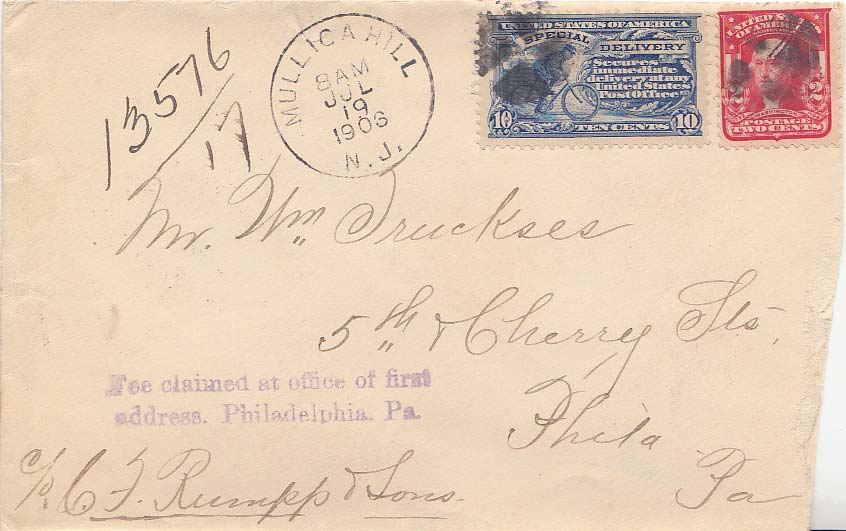 13576
17
MULLICA HILL
8AM
JUL
19
1903
N.J.
UNITED STATES OF AMERICA
SPECIAL DELIVERY
Secures
immediate
delivery at any
United States
Post Office
10 TEN CENTS 10
UNITED STATES
OF AMERICA
2 WASHINGTON 2
POSTAGE
TWO CENTS
Mr. Wm Truckses
5th & Cherry Sts.
Fee claimed at office of first
address. Philadelphia. Pa.
Phila
Pa
c/o C. F. Rumpp & Sons.